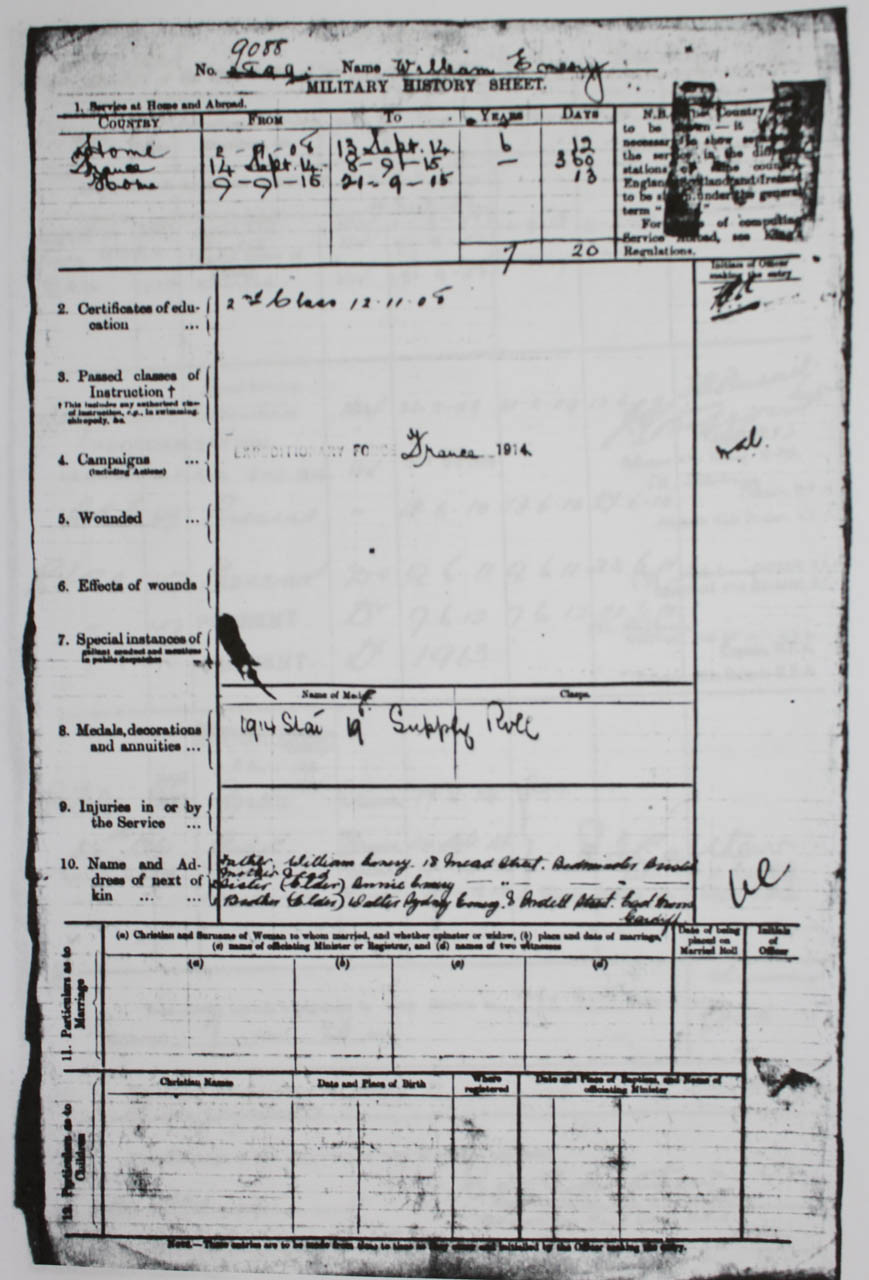 9088
No. Name William Emery
MILITARY HISTORY SHEET.
1. Service at Home and Abroad.
COUNTRY FROM TO YEARS DAYS
Home 2 - 08 13 Sept. 14 6 12
France 14 Sept. 14 8-9-15 — 360
Home 9-9-15 21-9-15 13
7 20
N.B. Country
to be — it
necessary to show
the service in the
stations of the
England Scotland and Ireland
to be under the general
term "
For of computing
Service Abroad, see King's
Regulations.
Initials of Officer
making the entry
2. Certificates of edu-
cation ...
2nd Class 12.11.08
3. Passed classes of
Instruction †
† This includes any authorized class
of instruction, e.g., in swimming,
chiropody, &c.
4. Campaigns ...
(including Actions)
EXPEDITIONARY FORCE France 1914.
5. Wounded ...
6. Effects of wounds
7. Special instances of
gallant conduct and mentions
in public despatches
Name of Medal Clasps.
8. Medals, decorations
and annuities ...
1914 Star 19 Supply Roll
9. Injuries in or by
the Service ...
10. Name and Ad-
dress of next of
kin ... ...
Father William Emery. 18 Mead Street. Bedminster Bristol
Mother
Sister (Elder) Annie Emery " — "
Brother (Elder) Walter Sydney Emery. Street.
Cardiff
11. Particulars as to
Marriage
(a) Christian and Surname of Woman to whom married, and whether spinster or widow, (b) place and date of marriage,
(c) name of officiating Minister or Registrar, and (d) names of two witnesses
Date of being
placed on
Married Roll
Initials
of
Officer
(a) (b) (c) (d)
12. Particulars as to
Children
Christian Names Date and Place of Birth Where
registered Date and Place of Baptism, and Name of
officiating Minister
NOTE.—These entries are to be made from time to time as they occur and initialled by the Officer making the entry.